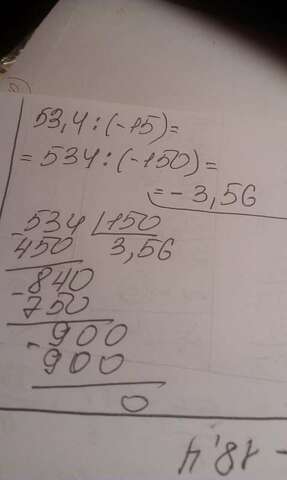 53,4:(-15)=
=534:(-150)=
=-3,56
534 150
450 3,56
-840
750
-900
900
0
-18,4